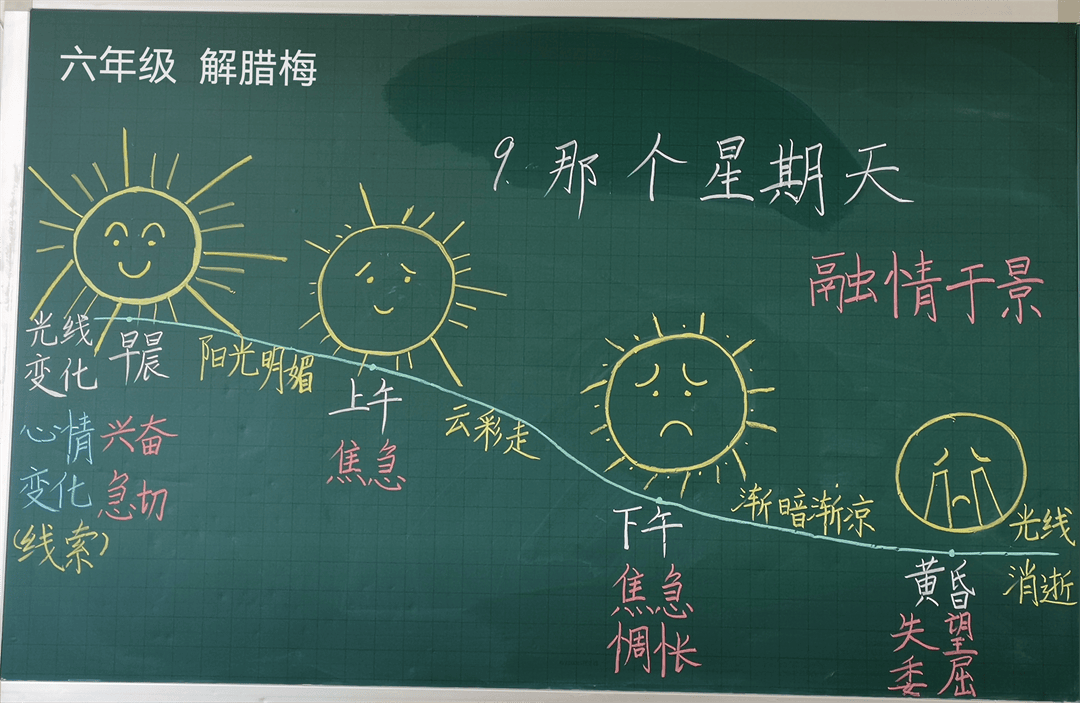 六年级 解腊梅
9. 那个星期天
融情于景
光线
变化
早晨
阳光明媚
上午
云彩走
下午
渐暗渐凉
黄昏
光线
消逝
心情
变化
(线索)
兴奋
急切
焦急
焦急
惆怅
失望
委屈